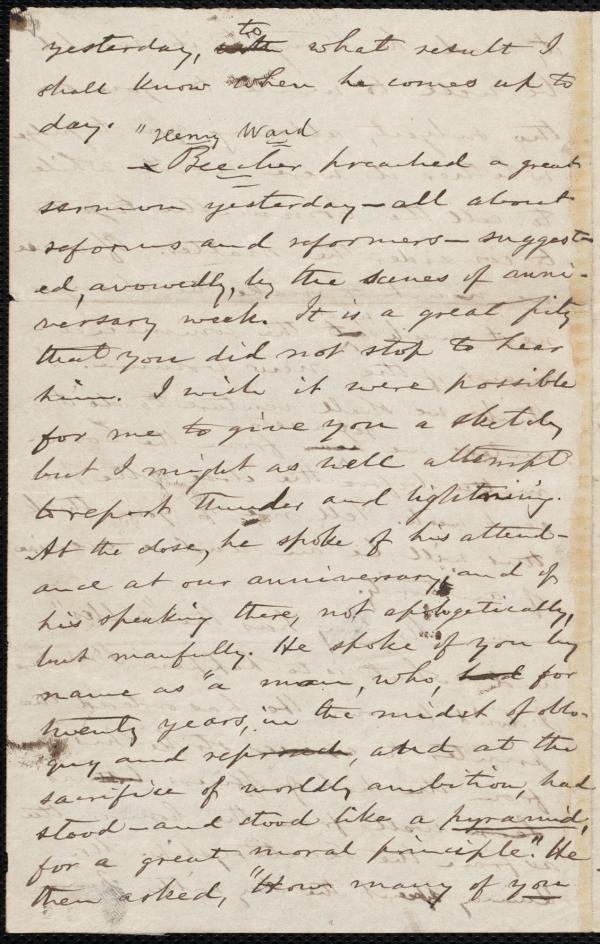 yesterday, to what result I
shall know when he comes up to
day.
"Henry Ward
Beecher preached a great
sermon yesterday—all about
reforms and reformers—suggest-
ed, avowedly, by the scenes of anni-
versary week. It is a great pity
that you did not stop to hear
him. I wish it were possible
for me to give you a sketch,
but I might as well attempt
to report thunder and lightning.
At the close, he spoke of his attend-
ance at our anniversary, and of
his speaking there, not apologetically,
but manfully. He spoke of you by
name as "a man, who, for
twenty years, in the midst of oblo-
quy and reproach, and at the
sacrifice of worldly ambition, had
stood—and stood like a pyramid,
for a great moral principle." He
then asked, "How many of you